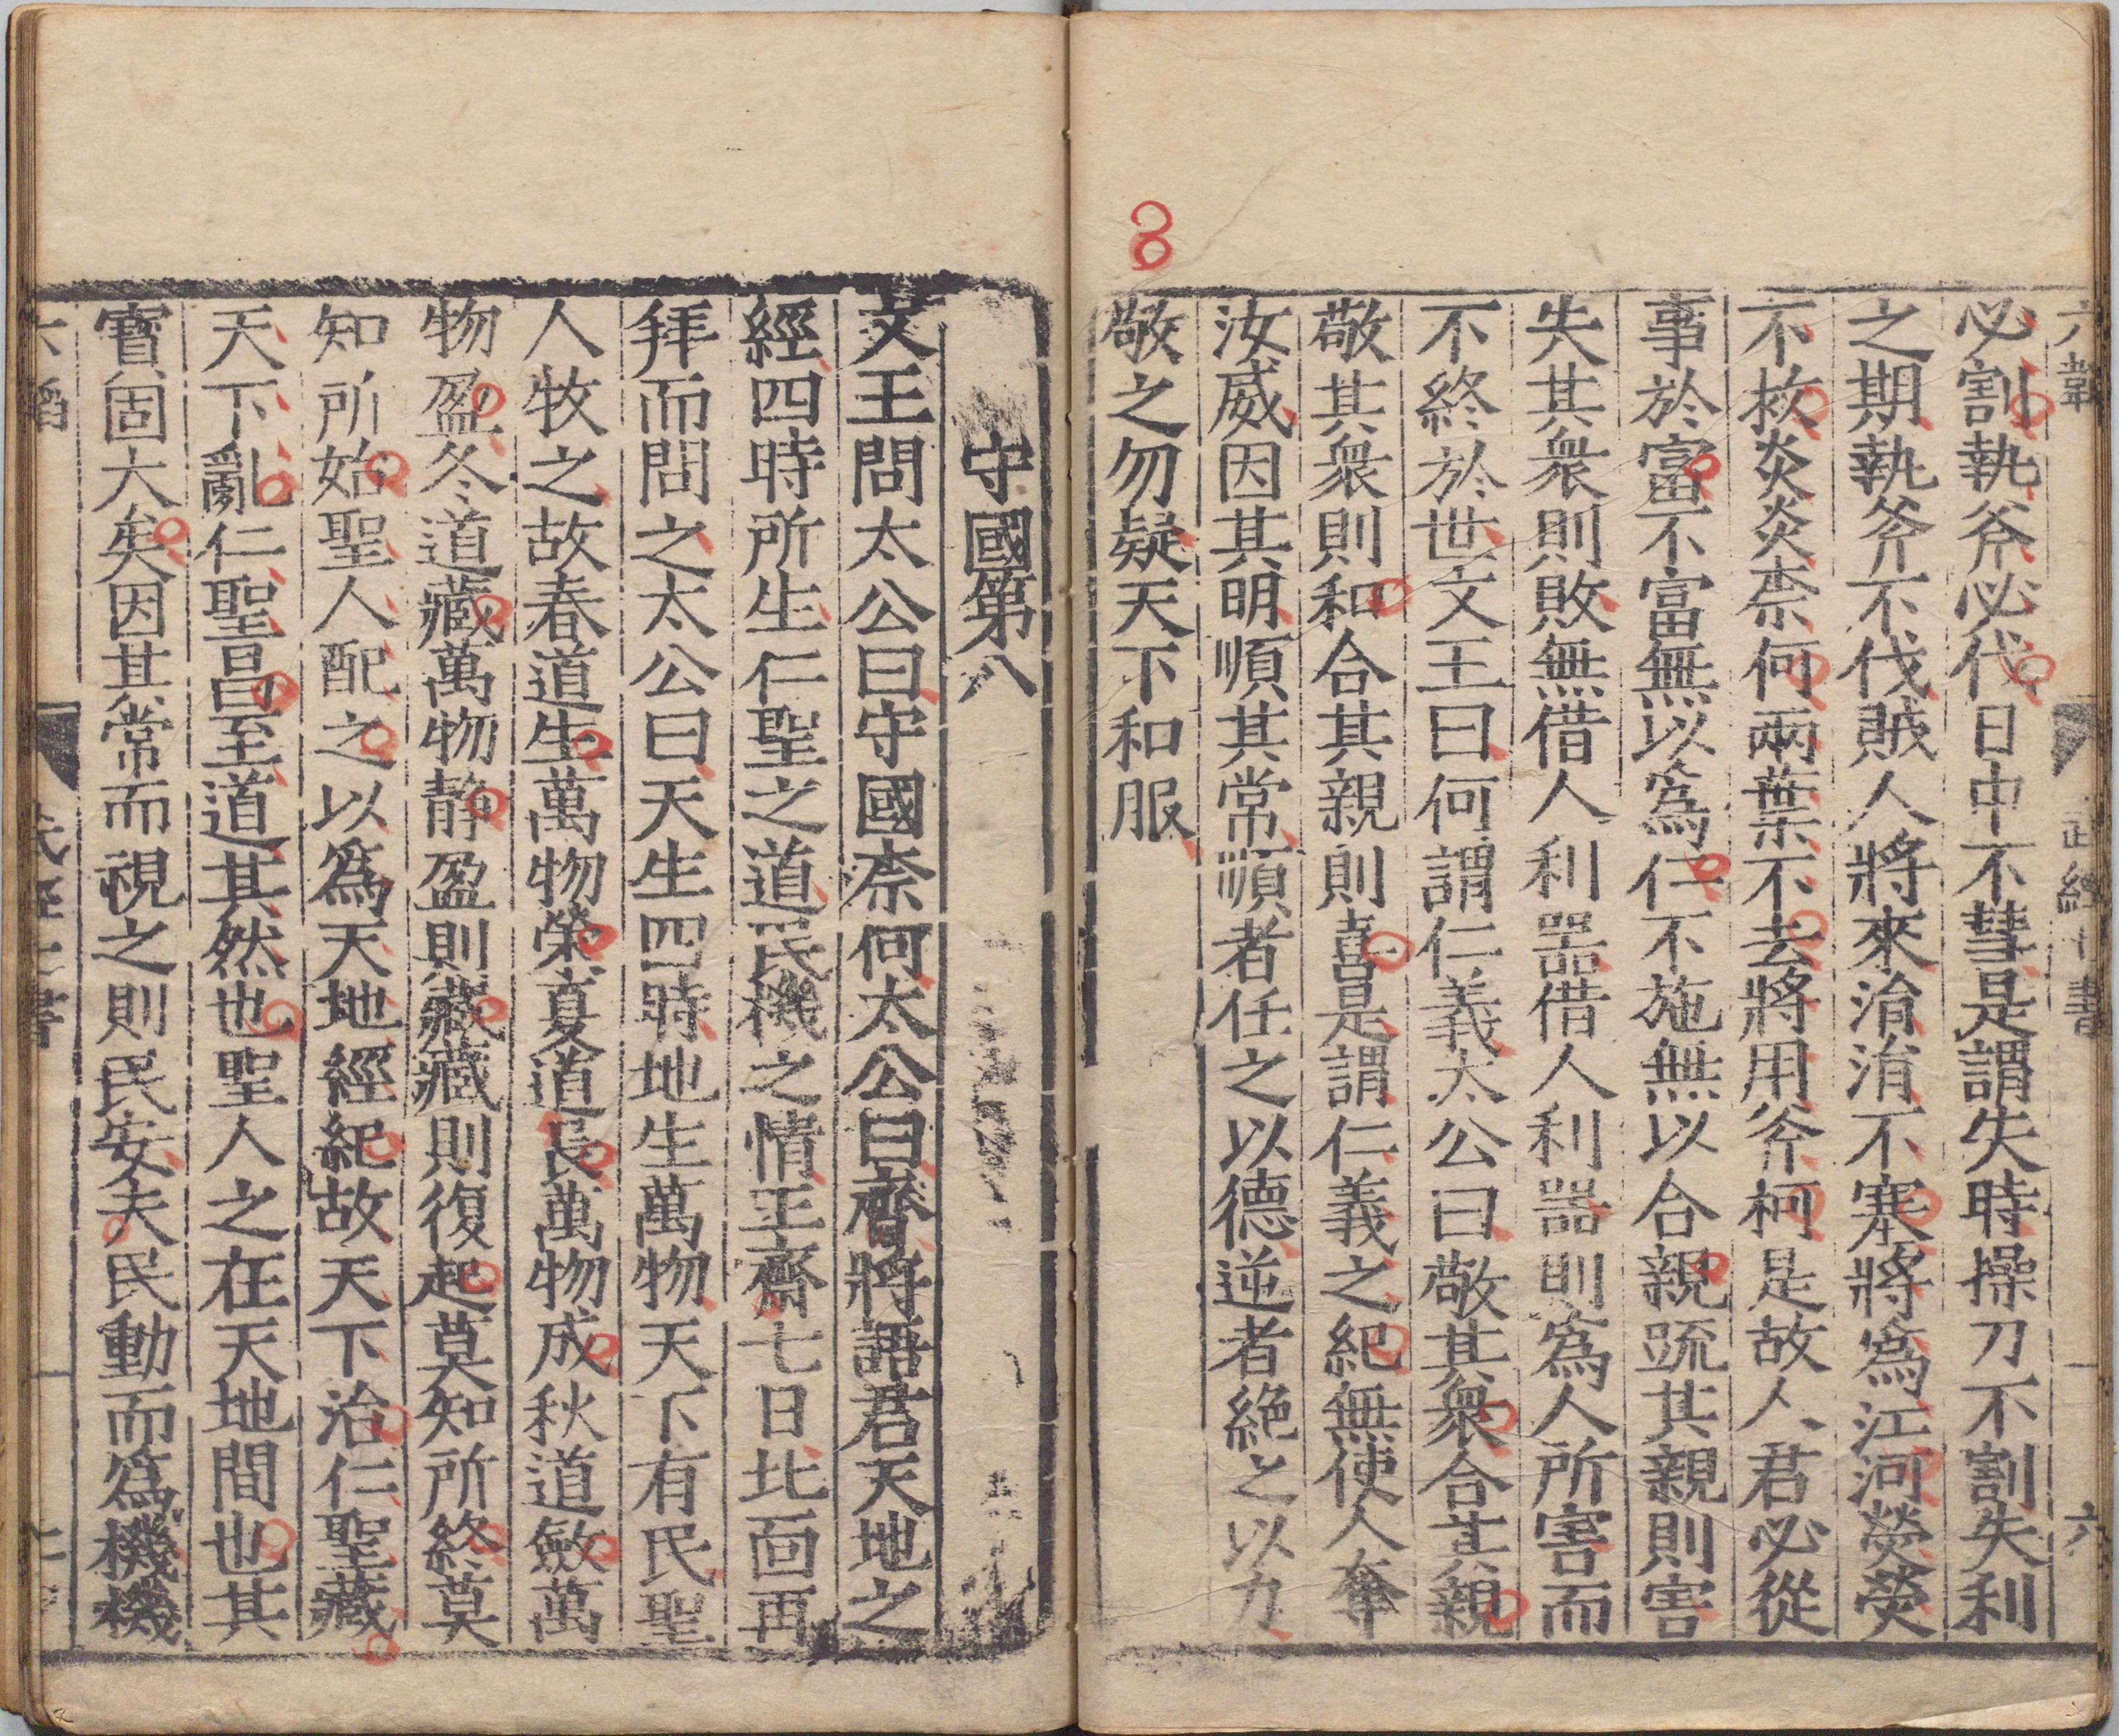 六韜
武經七書
六
必割執斧必伐日中不彗是謂失時操刀不割失利
之期執斧不伐賊人將來涓涓不塞將爲江河熒熒
不救炎炎柰何兩葉不去將用斧柯是故人君必從
事於富不富無以爲仁不施無以合親䟽其親則害
失其衆則敗無借人利器借人利器則爲人所害而
不終於世文王曰何謂仁義太公曰敬其衆合其親
敬其衆則和合其親則喜是謂仁義之紀無使人奪
汝威因其明順其常順者任之以德逆者絶之以力
敬之勿疑天下和服
守國第八
文王問太公曰守國柰何太公曰齋將語君天地之
經四時所生仁聖之道民機之情王齋七日北面再
拜而問之太公曰天生四時地生萬物天下有民聖
人牧之故春道生萬物榮夏道長萬物成秋道斂萬
物盈冬道藏萬物静盈則藏藏則復起莫知所終莫
知所始聖人配之以爲天地經紀故天下治仁聖藏
天下亂仁聖昌至道其然也聖人之在天地間也其
寶固大矣因其常而視之則民安夫民動而爲機機
六韜
武經七書
七